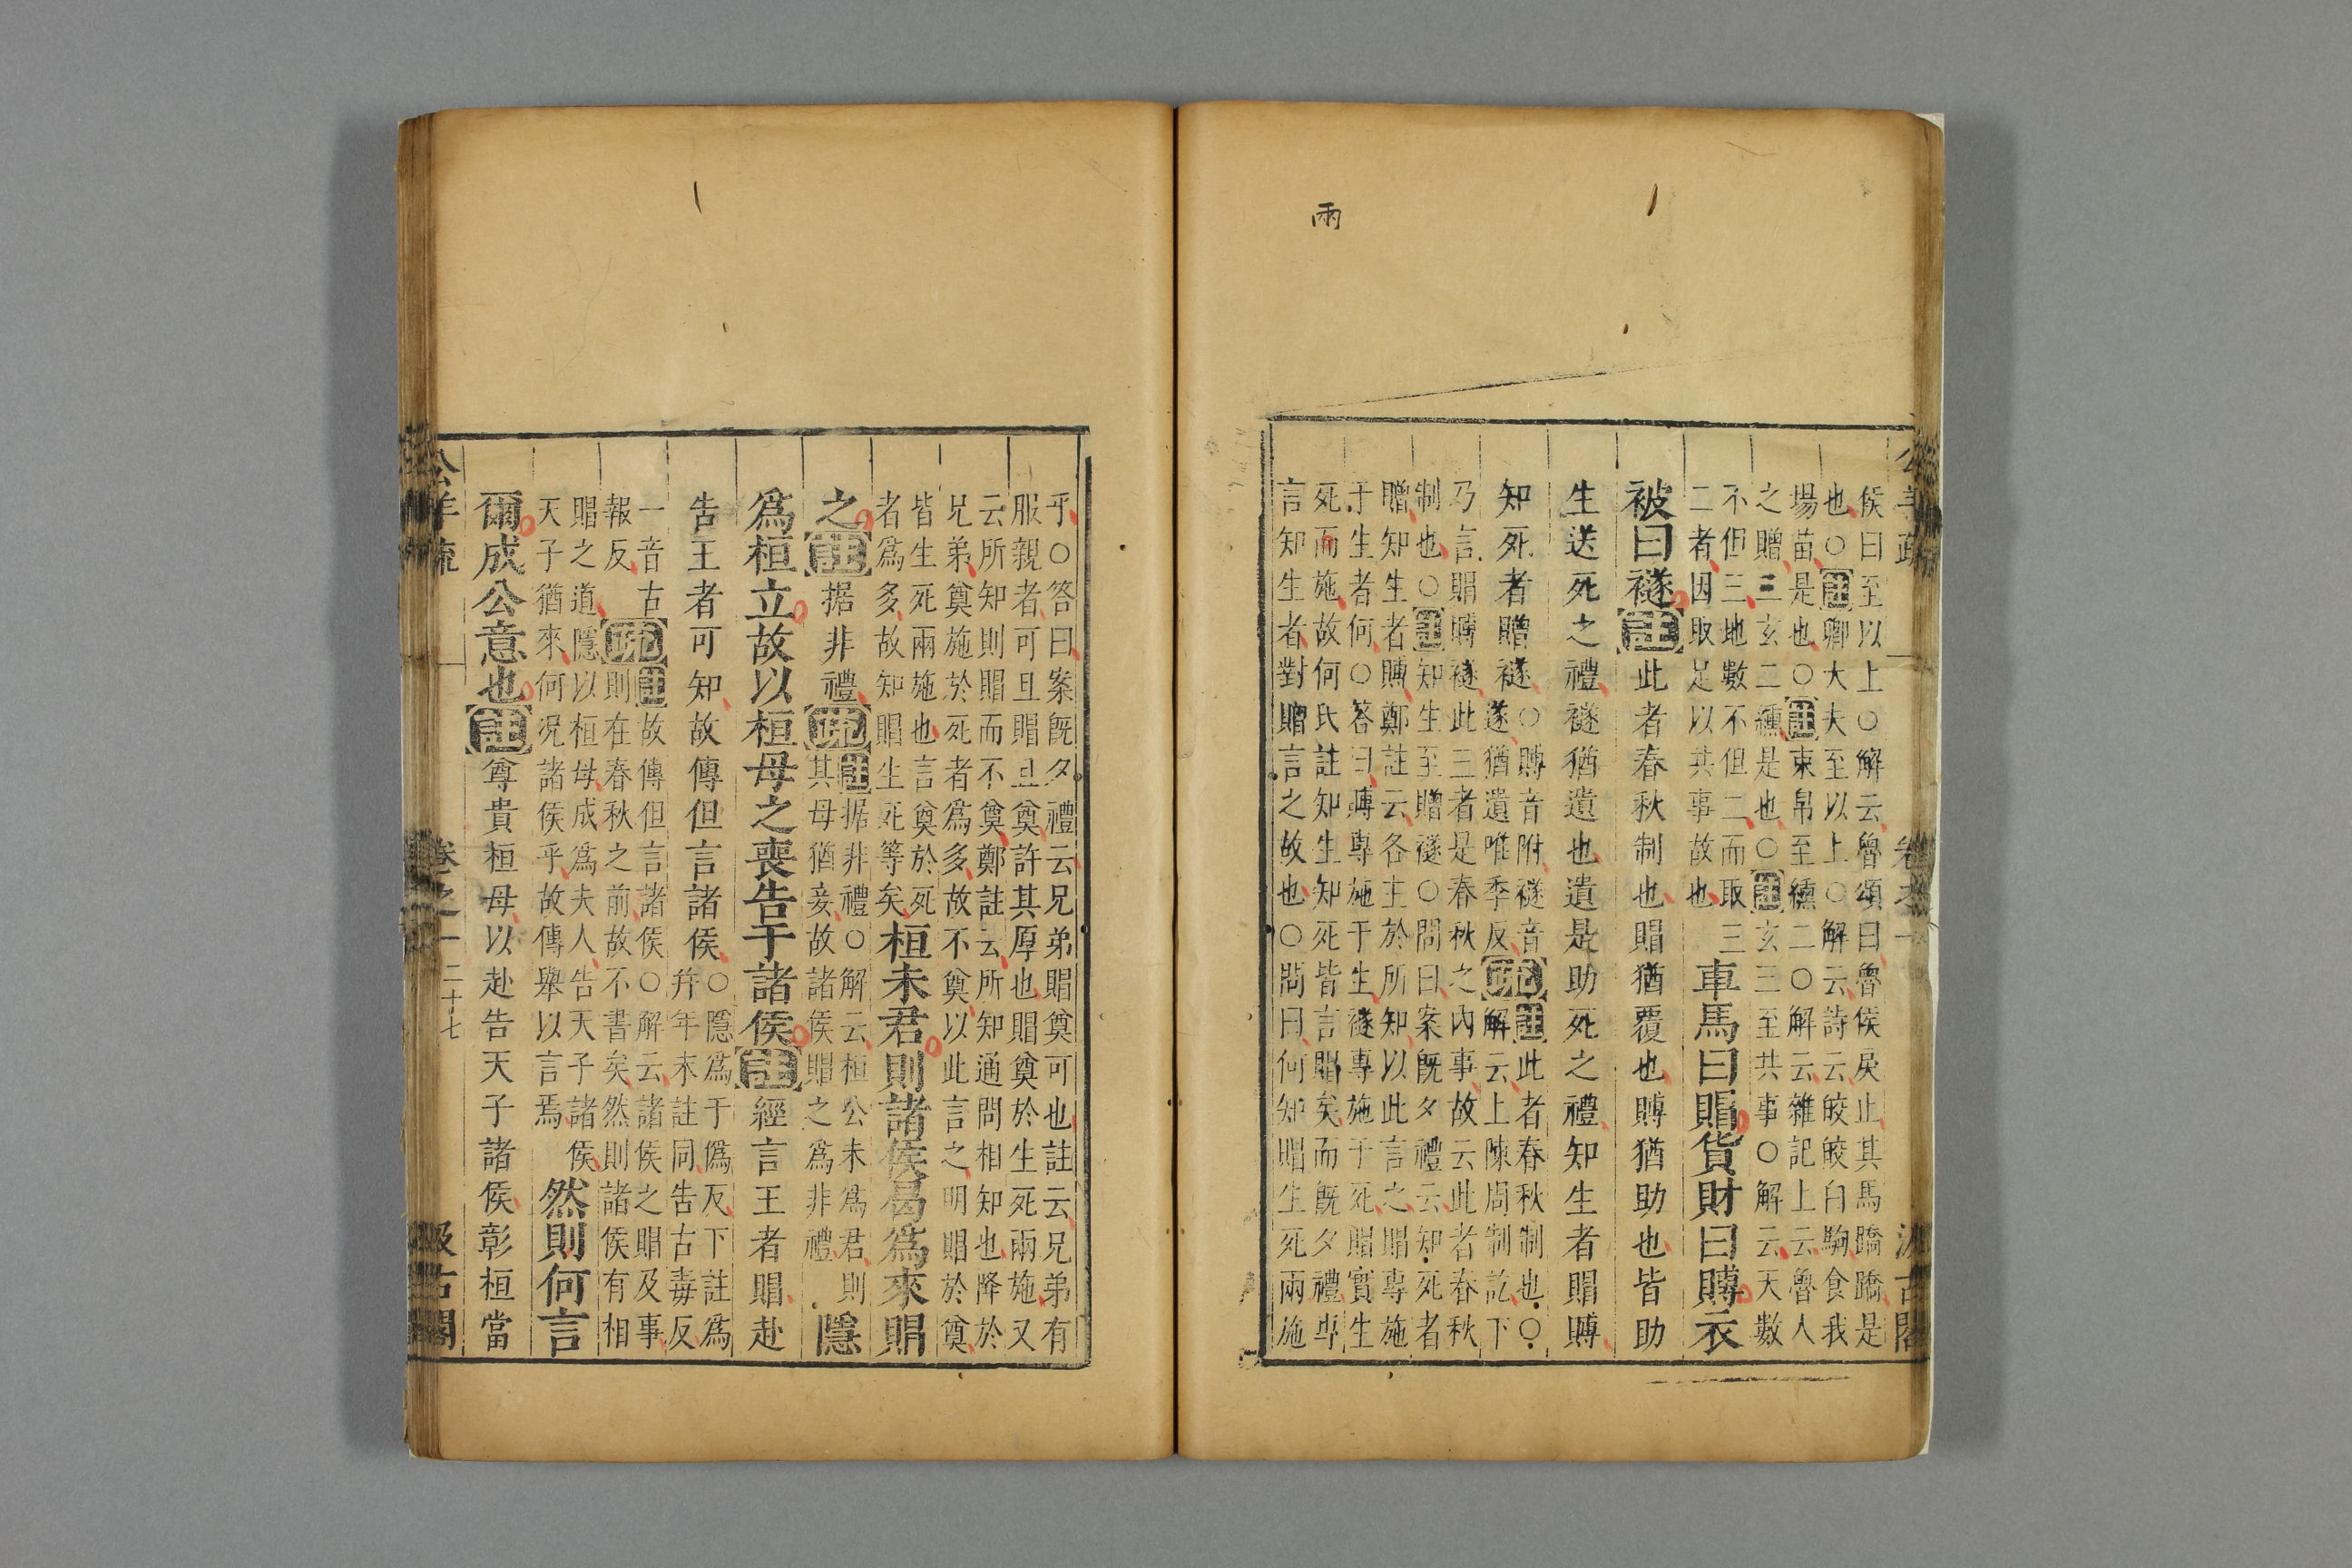 兩
公羊疏
卷之一
汲古閣
侯曰至以上○解云魯頌曰魯侯戾止其馬蹻蹻是
也○註卿大夫至以上○解云詩云皎皎白駒食我
場苗是也○註束帛至纁二○解云雜記上云魯人
之贈三玄二纁是也○註玄三至共事○解云天數
不但三地數不但二而取三
二者因取足以共事故也
車馬曰賵貨財曰賻衣
被曰襚註此者春秋制也賵猶覆也賻猶助也皆助
生送死之禮襚猶遺也遺是助死之禮知生者賵賻
知死者贈襚○賻音附襚音
遂猶遺唯季反疏註此者春秋制也○
解云上陳周制訖下
乃言賵賻襚此三者是春秋之內事故云此者春秋
制也○註知生至贈襚○問曰案既夕禮云知死者
贈知生者賻鄭註云各主於所知以此言之賵專施
于生者何○荅曰賻專施于生襚專施于死賵實生
死而施故何氏註知生知死皆言賵矣而既夕禮專
言知生者對贈言之故也○問曰何知賵生死兩施
乎○答曰案既夕禮云兄弟賵奠可也註云兄弟有
服親者可且賵且奠許其厚也賵奠於生死兩施又
云所知則賵而不奠鄭註云所知通問相知也降於
兄弟奠施於死者為多故不奠以此言之明賵於奠
皆生死兩施也言奠於死
者為多故知賵生死等矣
桓未君則諸侯曷為來賵
之註据非禮疏註据非禮○解云桓公未為君則
其母猶妾故諸侯賵之為非禮
隱
為桓立故以桓母之喪告于諸侯註經言王者賵赴
告王者可知故傳但言諸侯○隱為于僞反下註為
幷年末註同告古毒反
一音古
報反疏註故傳但言諸侯○解云諸侯之賵及事
則在春秋之前故不書矣然則諸侯有相
賵之道隱以桓母成為夫人告天子諸侯
天子猶來何況諸侯乎故傳舉以言焉
然則何言
爾成公意也註尊貴桓母以赴告天子諸侯彰桓當
公羊疏
卷之一
二十七
汲古閣